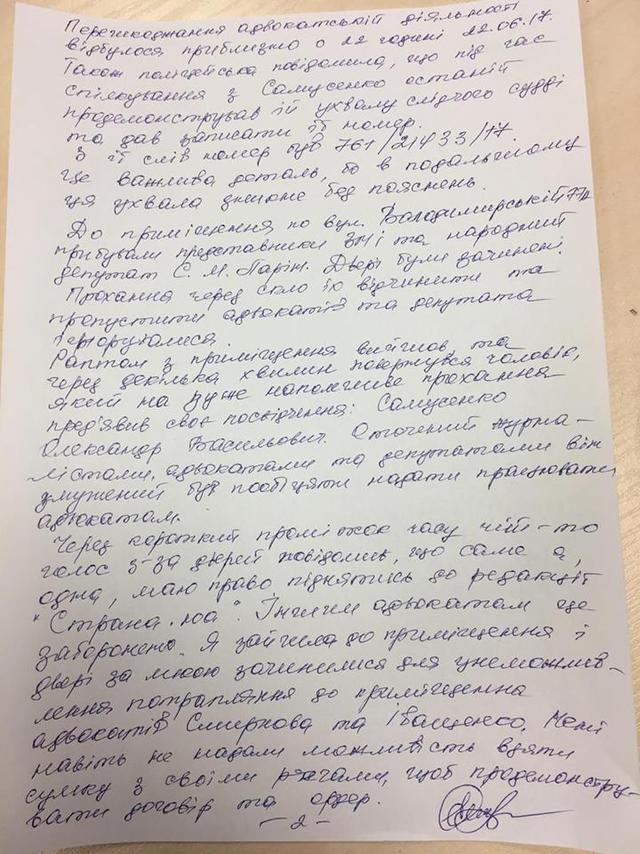 Перешкоджання адвокатській діяльності
відбулося приблизно о 22 годині 22.06.17.
Також поліцейська повідомила, що під час
спілкування з Самусенко останій
продемонстрував їй ухвалу слідчого судді
та дав записати її номер.
З її слів номер був 761/21433/17.
Це важлива деталь, бо в подальшому
ця ухвала зникне без пояснень.
До приміщення по вул. Володимирській
прибували представники ЗМІ та народний
депутат С. М. Двері були зачинені.
Прохання через скло їх відчинити та
пропустити адвокатів та депутата
ігнорувалися.
Раптом з приміщення вийшов, та
через декілька хвилин повернувся чоловік,
який на дуже наполегливе прохання
пред'явив своє посвідчення: Самусенко
Олександр Васильович. Оточений журна-
лістами, адвокатами та депутатами він
змушений був пообіцяти надати працювати
адвокатам.
Через короткий проміжок часу чий-то
голос з-за дверей повідомив, що саме я,
одна, маю право піднятись до редакції
"Страна.юа". Іншим адвокатам це
заборонено. Я зайшла до приміщення і
двері за мною зачинилися для унеможлив-
лення потрапляння до приміщення
адвокатів Смирнова та Іващенко. Мені
навіть не надали можливість взяти
сумку з своїми речами, щоб продемонстру-
вати договір та ордер.
- 2 -